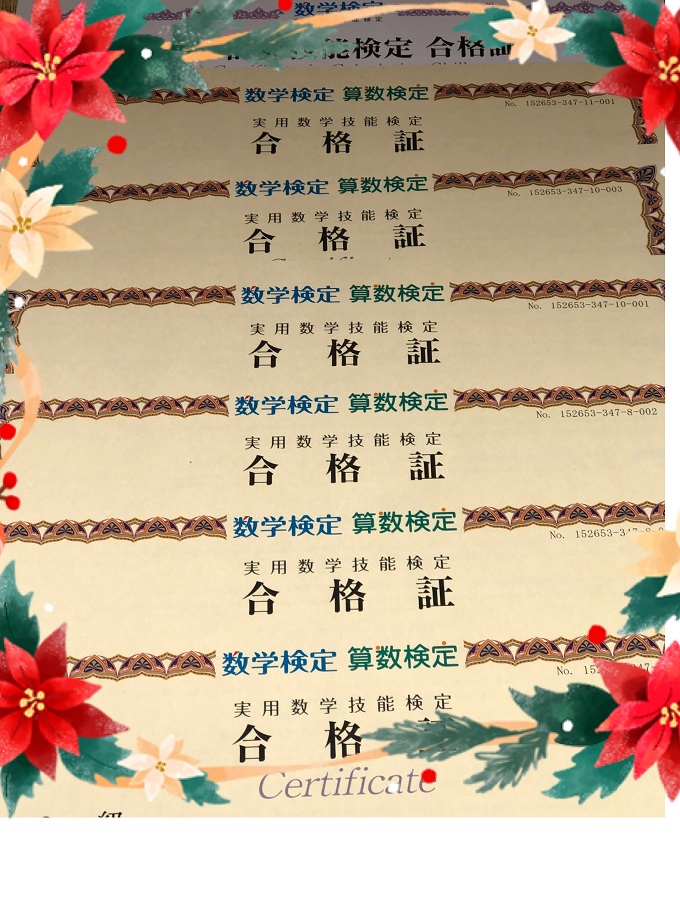 数学検定
技能検定 合格証
数学検定 算数検定
No. 152653-347-11-001
実用数学技能検定
合格証
数学検定 算数検定
No. 152653-347-10-003
実用数学技能検定
合格証
数学検定 算数検定
No. 152653-347-10-001
実用数学技能検定
合格証
数学検定 算数検定
No. 152653-347-8-002
実用数学技能検定
合格証
数学検定 算数検定
No. 152653-347-8
実用数学技能検定
合格証
数学検定 算数検定
No. 15
実用数学技能検定
合格
Certificate